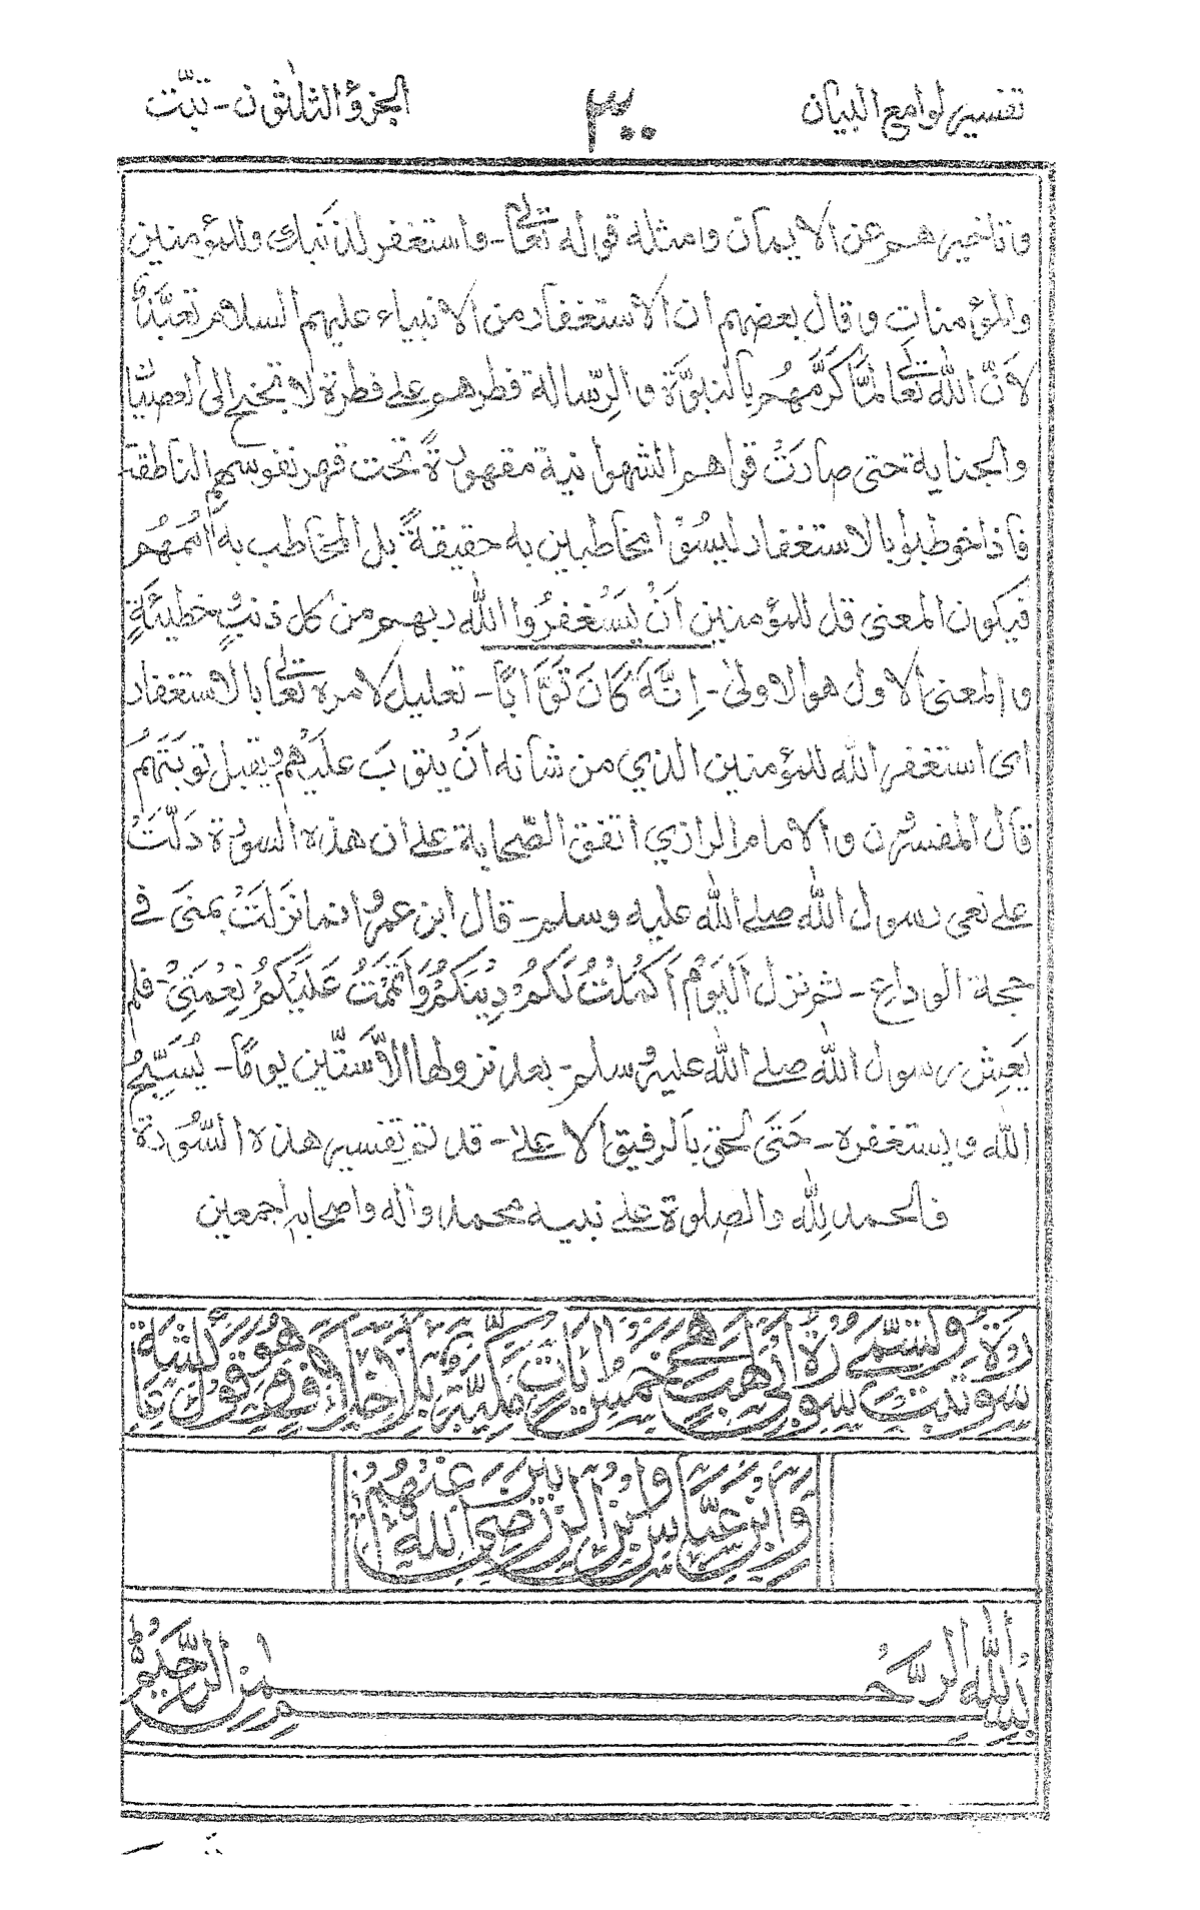 تفسير لوامع البيان ٣٠٠ الجزؤ الثلثون - تبّت
وتاخيرهم عن الايمان ومثله قوله تعالى - واستغفر لذنبك وللمؤمنين
والمؤمنات وقال بعضهم ان الاستغفار من الانبياء عليهم السلام تعبّدًا
لانّ الله تعالى لمّا كرّمهم بالنبوّة والرّسالة فطرهم على فطرة لا تجنح الى العصيان
والجناية حتى صارت قواهم الشهوانية مقهورةً تحت قهر نفوسهم الناطقة
فاذا خوطبوا بالاستغفار ليسوا مخاطبين به حقيقةً بل المخاطب به اُمَمُهُم
فيكون المعنى قل للمؤمنين اَنْ يَسْتغفرُوا الله ربهم من كل ذنبٍ وخطيئةٍ
والمعنى الاول هو الاولىٰ - اِنَّهٗ كَانَ تَوَّابًا - تعليل لامره تعالى بالاستغفار
اى استغفر الله للمؤمنين الذي من شانه اَنْ يتوبَ عليهم ويقبل توبتهم
قال المفسرون والامام الرازي اتفق الصّحابة على ان هذه السورة دَلّتْ
على نعى رسول الله صلى الله عليه وسلم - قال ابن عمر وانما نزلَتْ بمنى فى
حجة الوداع - ثم نزل اَلْيَوْمَ اَكْمَلْتُ لَكُمْ دِيْنَكُمْ وَاَتْمَمْتُ عَلَيْكُمْ نِعْمَتِيْ - فلم
يَعِش رسول الله صلى الله عليه وسلم - بعد نزولها الّا ستّين يومًا - يُسَبِّحُ
الله ويستغفره - حَتّى لحق بالرفيق الاعلى - قد تم تفسير هذه السُّورة
فالحمد لِلّٰه والصلوة على نبيه محمد واٰله واصحابه اجمعين
سورة تبت وتسمى سورة ابى لهب هى خمس اٰيات مكية بلا خلاف وهو قول عائشة
وابن عباس وابن الزبير رضى الله عنهم
بسم الله الرحمن الرحيم